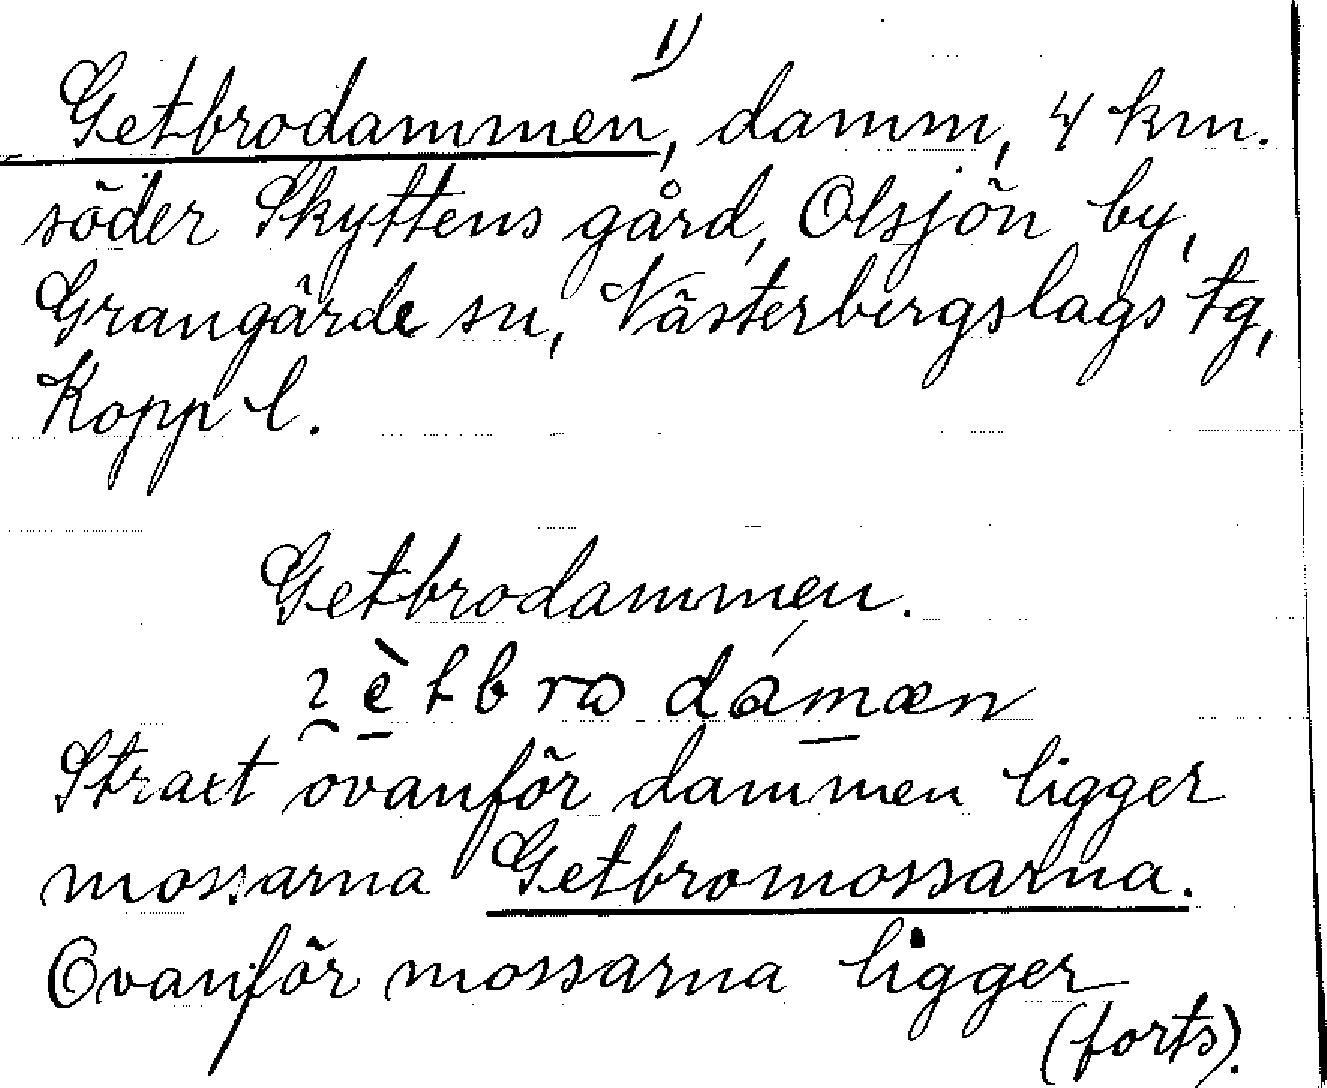 1)
Getbrodammen, damm, 4 km.
söder Skyttens gård, Olsjön by,
Grangärde sn, Västerbergslags tg,
Kopp l.
Getbrodammen.
Straxt ovanför dammen ligger
mossarna Getbromossarna.
Ovanför mossarna ligger
(forts).